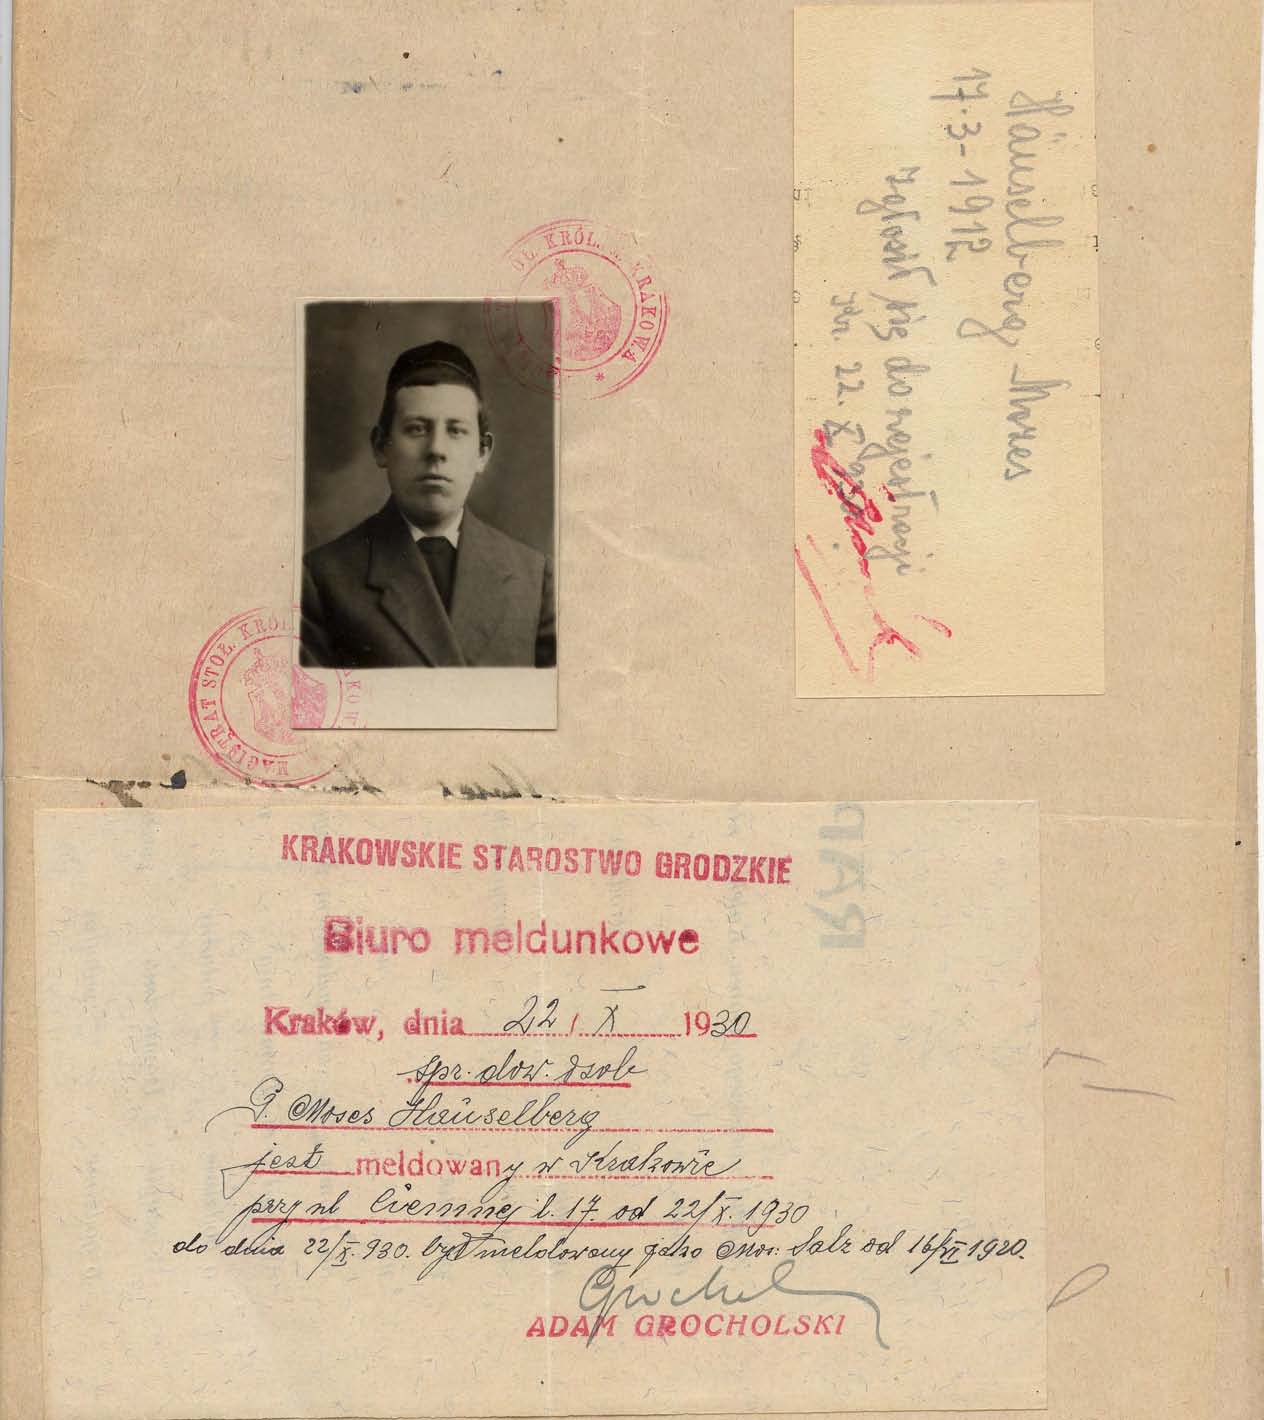 Häuselberg Mozes
17·3-1912
zgłosił się do rejestracji
Kr. 22. X
STOŁ. KRÓL. M. KRAKOWA *
MAGISTRAT STOŁ. KRÓL. KRAKOW
KRAKOWSKIE STAROSTWO GRODZKIE
Biuro meldunkowe
Kraków, dnia 22/X 1930
spr. dow. osob
P. Moses Häuselberg
jest meldowany w Krakowie
przy ul Ciemnej l. 17. od 22/X. 1930
do dnia 22/X. 930. był meldowany jako Mos: Salz od 16/VI 1920.
ADAM GROCHOLSKI